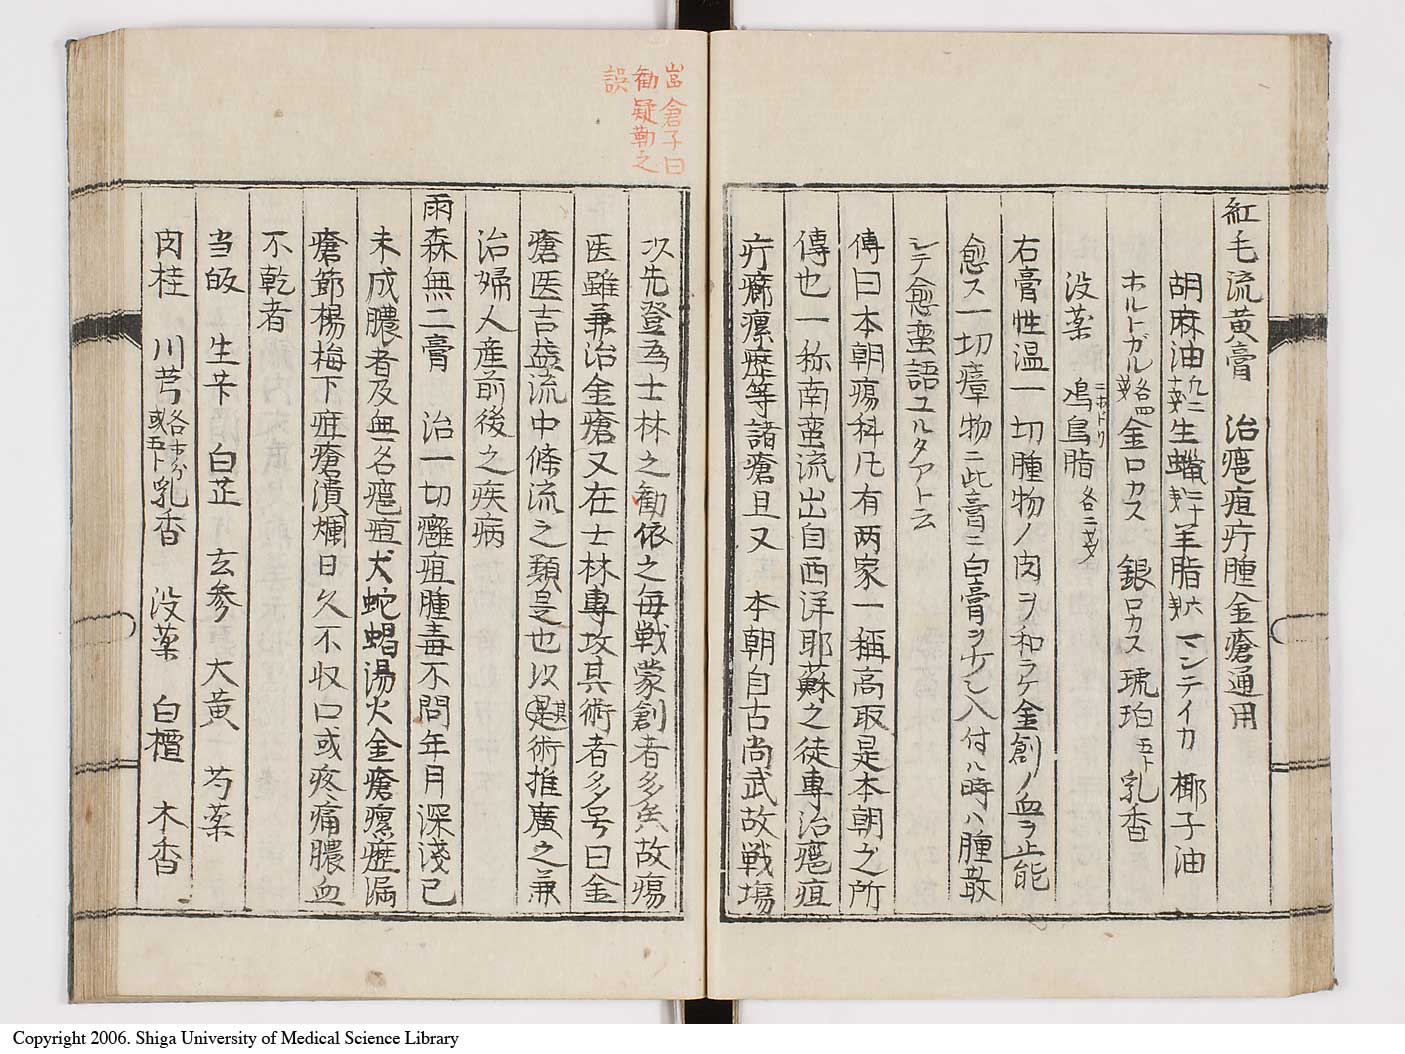 紅毛流黄膏　治瘡疽疔腫金瘡通用
胡麻油 生蠟 羊脂 マンテイカ　椰子油
ホルトガル 各四 金ロカス　銀ロカス　琥珀 五卜 乳香
没薬　鳰鳥脂 ニホトリ 各二
右膏性温一切腫物ノ肉ヲ和ラケ金創ノ血ヲ止能
愈ス一切瘴物ニ此膏ニ白膏ヲ少シ入付ハ時ハ腫散
シテ愈蛮語ユルタアト云
傳曰本朝瘍科凡有两家一稱高取是本朝之所
傳也一称南蛮流出自西洋耶蘇之徒専治瘡疽
疔癤瘰癧等諸瘡且又　本朝自古尚武故戦場
次先登為士林之勧依之毎戦蒙創者多矣故瘍
医雖兼治金瘡又在士林専攻其術者多号曰金
瘡医吉益流中條流之類是也以其術推廣之兼
治婦人産前後之疾病
雨森無二膏　治一切癰疽腫毒不問年月深淺已
未成膿者及無名瘡疽犬蛇蝎湯火金瘡瘰癧漏
瘡節楊梅下疰瘡潰爛日久不収口或疼痛膿血
不乾者
当皈　生芐　白芷　玄参　大黄　芍薬
肉桂　川芎 各十分或五卜 乳香　没薬　白檀　木香
倉子曰
勧疑勒之
誤
Copyright 2006. Shiga University of Medical Science Library